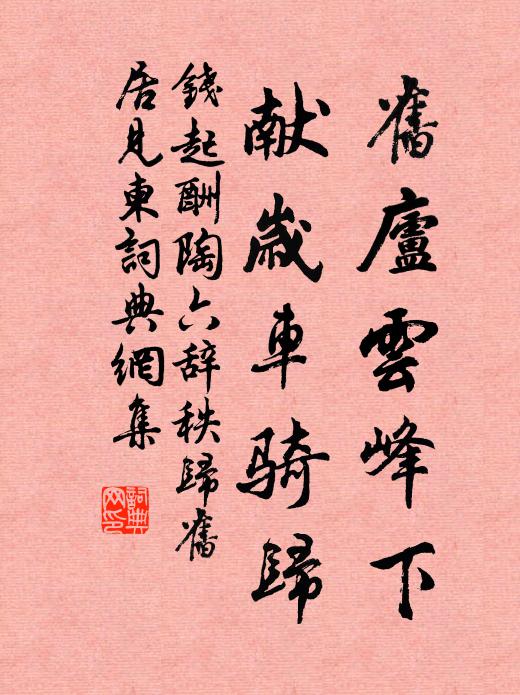 舊廬雲峰下
献歲車騎歸
錢起酬陶六辞秩歸舊
居見東詞典網集
詞典
网印